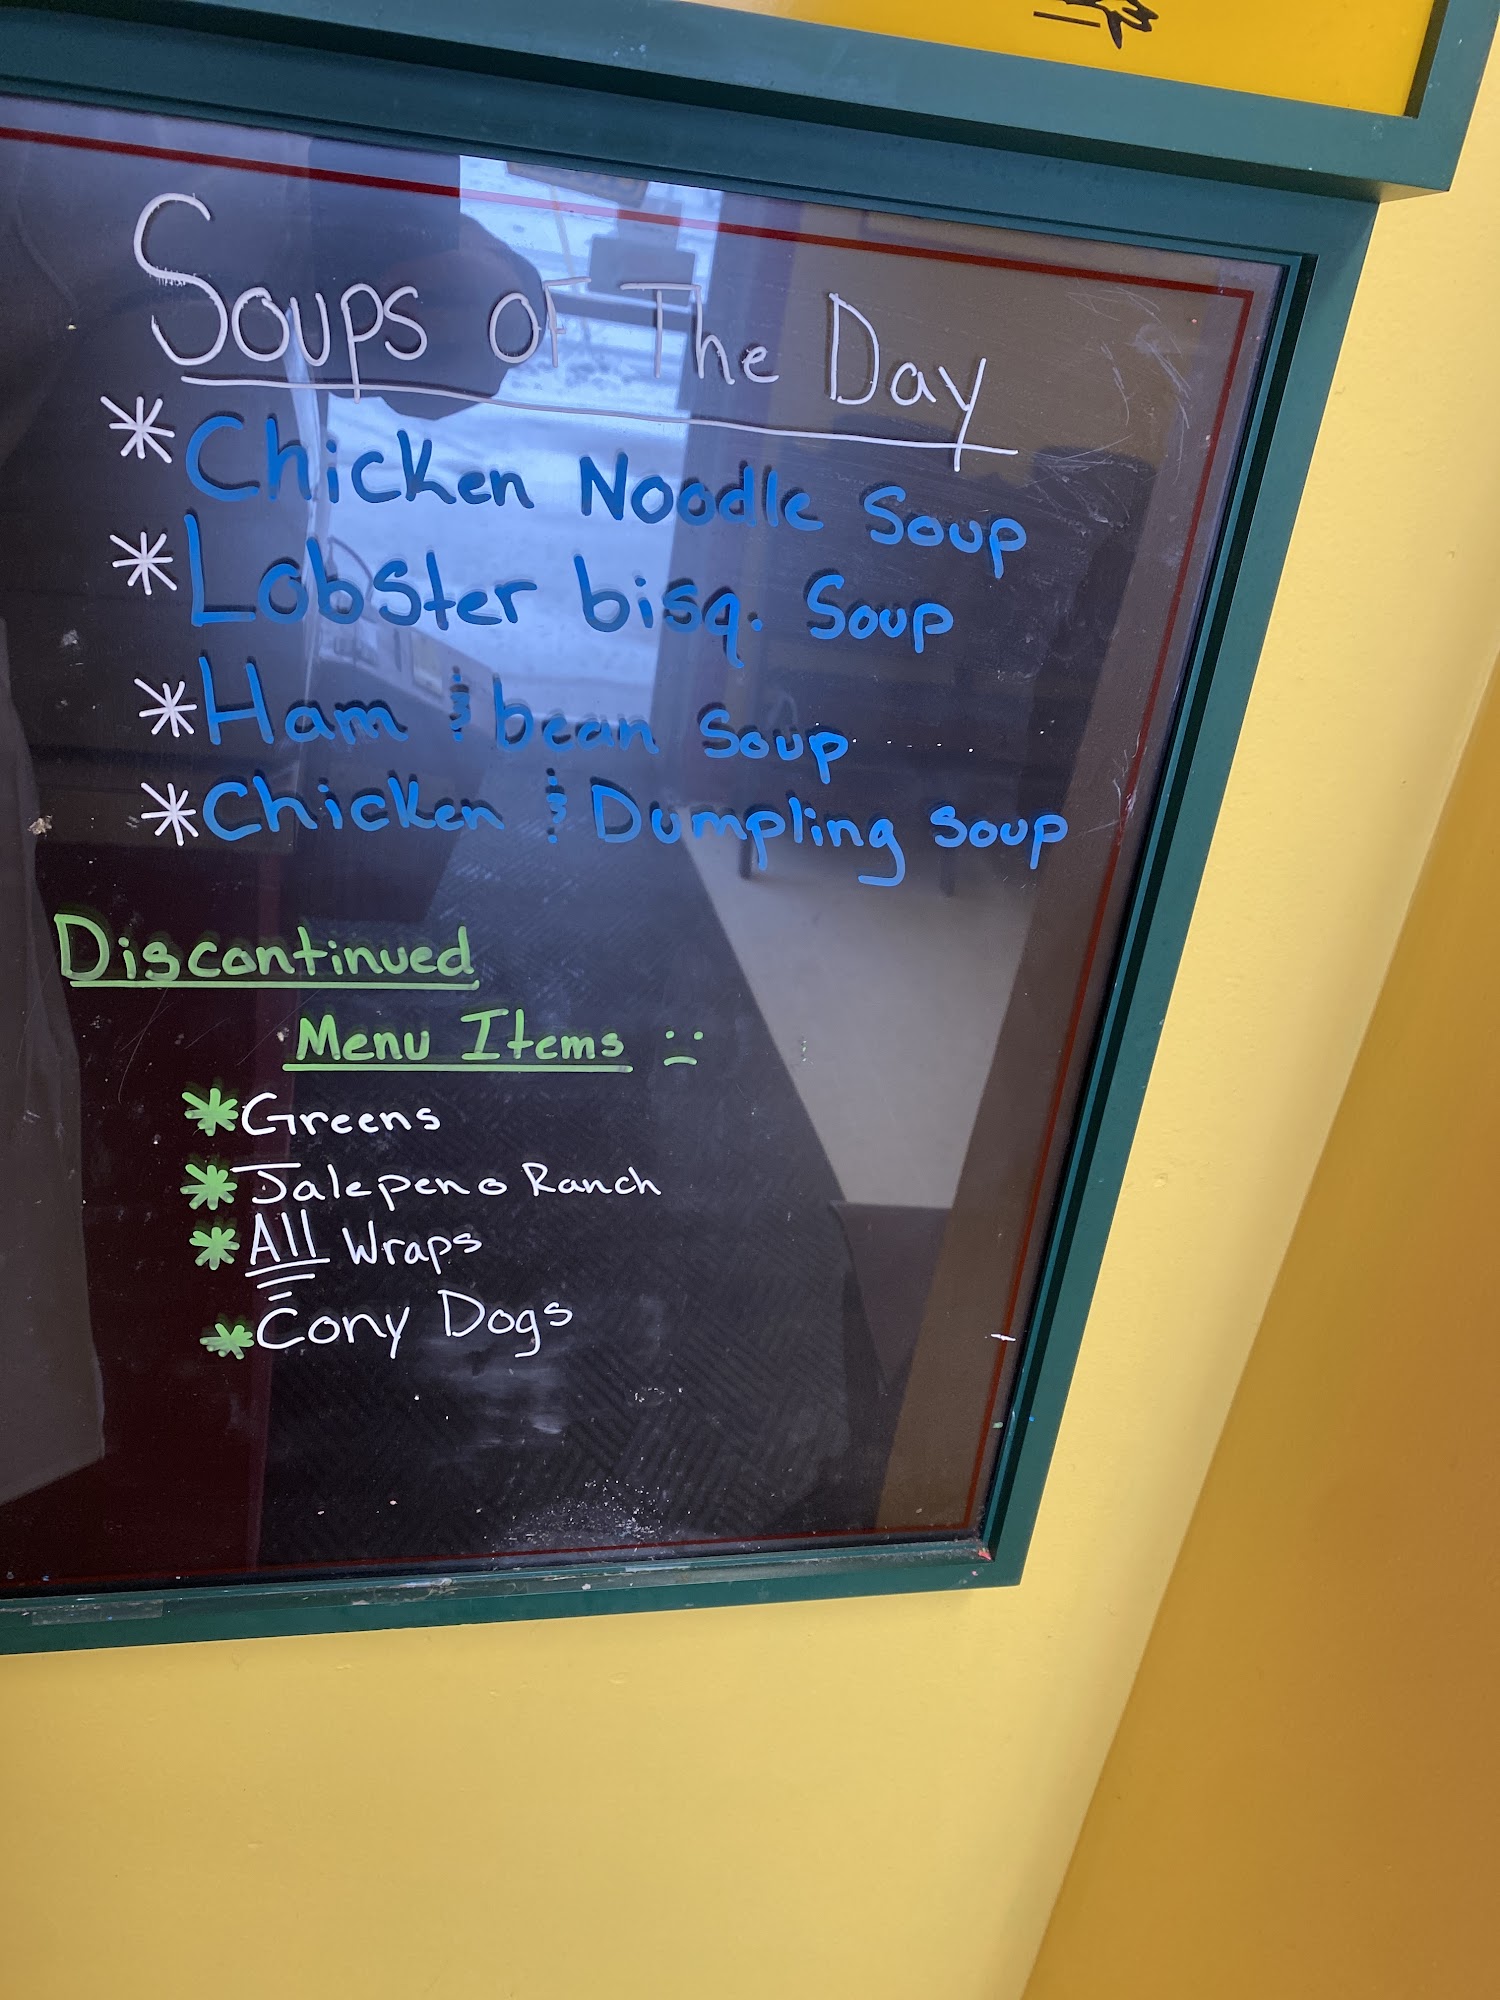 Soups OF The Day
* Chicken Noodle Soup
* Lobster bisq. Soup
* Ham & bean Soup
* Chicken & Dumpling Soup
Discontinued
Menu Items :(
* Greens
* Jalepeno Ranch
* All Wraps
* Cony Dogs